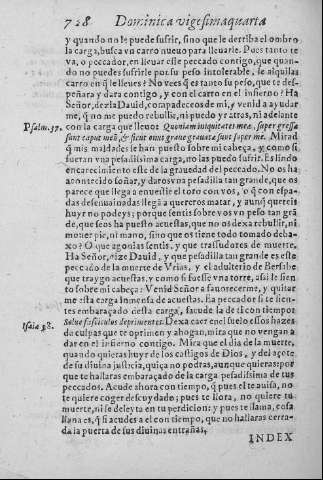 728 Dominica vigesimaquarta
y quando no le puede sufrir, sino que le derriba el ombro
la carga, busca vn carro nueuo para lleuarle. Pues tanto te
va, o peccador, en lleuar esse peccado contigo, que quan-
do no puedes sufrirle por su peso intolerable, se alquilas
carro en q̃ le lleues? No ves q̃ es tanto su peso, que te des-
peñara y dara contigo, y con el carro en el infierno? Ha
Señor, dezia Dauid, compadeceos de mi, y venid a ayudar
me, q̃ no me puedo rebullir, ni puedo yr atras, ni adelante
Psalm. 37. con la carga que lleuo: Quoniam iniquitates meæ, supergressæ
sunt caput meũ, & sicut onus graue grauatæ sunt super me. Mirad
q̃ mis maldades se han puesto sobre mi cabeça, y como si
fueran vna pesadissima carga, no las puedo sufrir. Es lindo
encarecimiento este de la grauedad del peccado. No os ha
acontecido soñar, y daros vna pesadilla tan grande, que os
parece que llega a enuestir el toro con vos, o q̃ con espa-
das desenuainadas llegã a quereros matar, y aunq̃ quereis
huyr no podeys; porque sentis sobre vos vn peso tan grã
de, que seos ha puesto acuestas, que no os dexa rebullir, ni
monee pie, ni mano, sino que os tiene todo tomado deba-
xo? O que agonias sentis, y que trassudores de muerte.
Ha Señor, dize Dauid, y que pesadilla tan grande es este
peccado de la muerte de Vrias, y el adulterio de Bersabe,
que traygo acuestas, y como si fuesse vna torre, assi le sien
to sobre mi cabeça: Venid Señor a fauorecerme, y quitar
me esta carga inmensa de acuestas. Ea peccador si te sien-
tes embaraçado desta carga, sacude la de ti con tiempo:
Isaiæ 58. Solue fasciculos deprimentes. Dexa caer en el suelo essos hazes
de culpas que te oprimen y ahogan, mira que no vengan a
dar en el infierno contigo. Mira que el dia de la muerte,
quando quieras huyr de los castigos de Dios, y del açote
de su diuina justicia, quiça no podras, aunque quieras: por
que te hallaras embaraçado de la carga pesadissima de tus
peccados. Acude ahora con tiempo, q̃ pues el te auisa, no
te quiere coger descuydado; pues te llora, no quiere tu
muerte, ni se deleyta en tu perdicion; y pues te llama, cosa
llana es, q̃ si acudes a el con tiempo, que no hallaras cerra-
da la puerta de sus diuinas entrañas.
INDEX